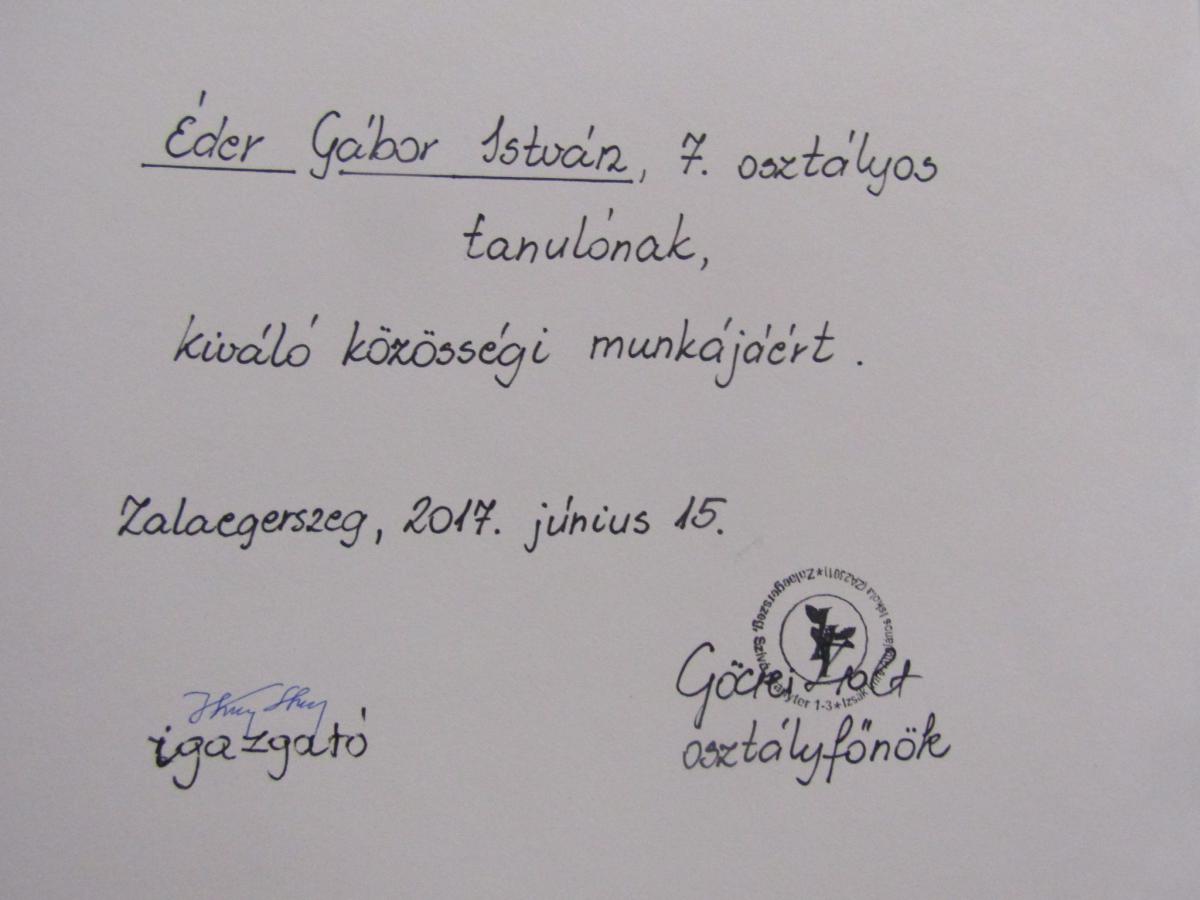 Éder Gábor István, 7. osztályos
tanulónak,
kiváló közösségi munkájáért.
Zalaegerszeg, 2017. június 15.
Zalaegerszeg, tér 1-3 * Izsák Iskola (ZA2301) *
Zsolt
igazgató
osztályfőnök